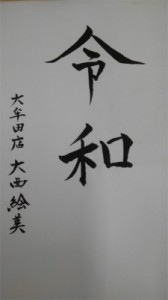 令和
大牟田店 大西絵美